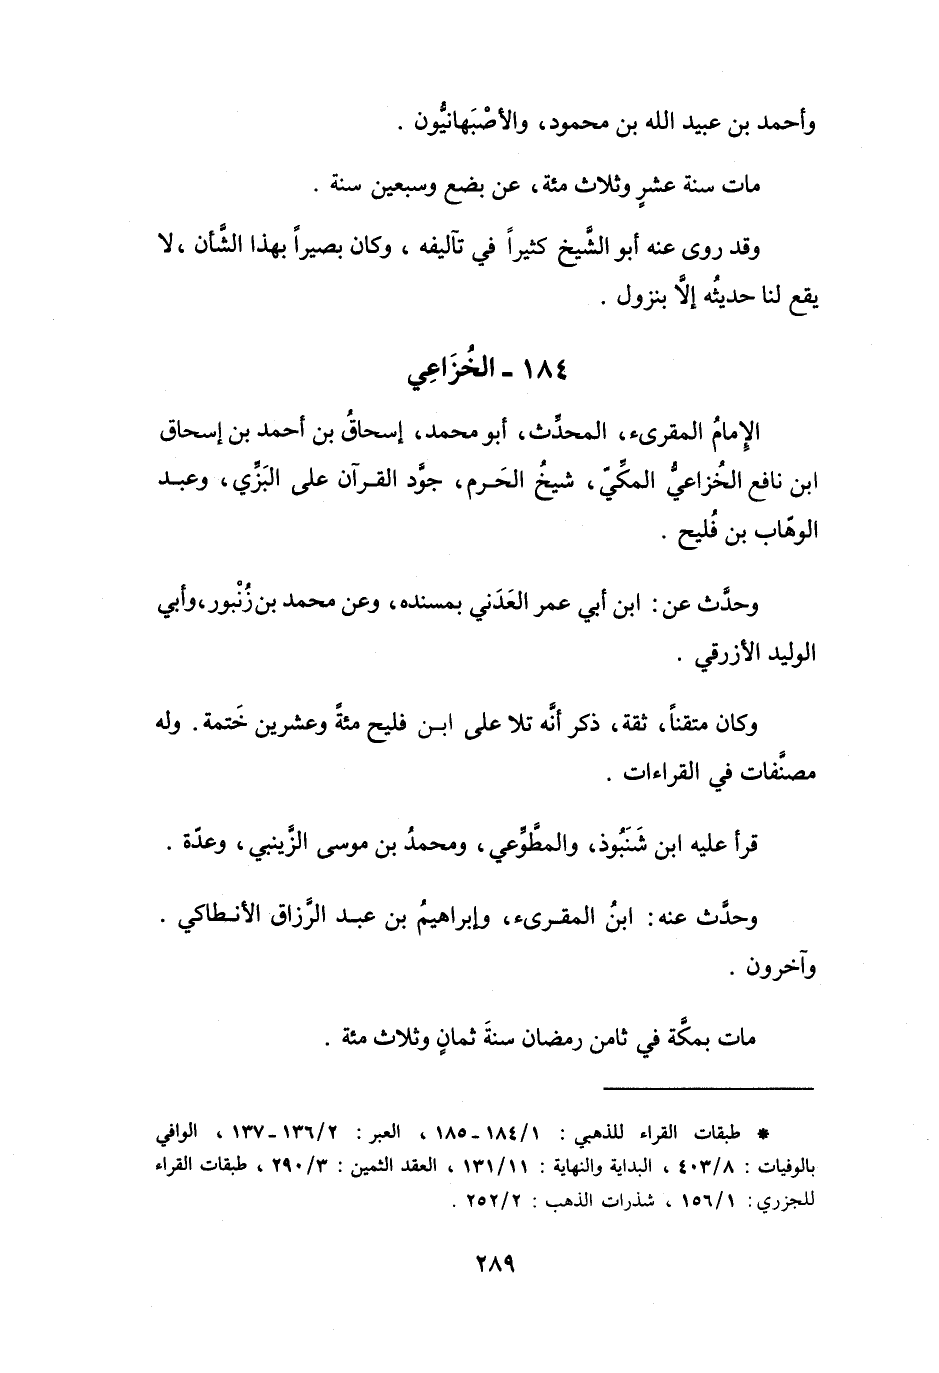 وأحمد بن عبيد الله بن محمود، والأصْبَهانيُّون .
مات سنة عشرٍ وثلاث مئة، عن بضع وسبعين سنة .
وقد روى عنه أبو الشَّيخ كثيراً في تآليفه ، وكان بصيراً بهذا الشَّأن ،لا
يقع لنا حديثُه إلَّا بنزول .
١٨٤ - الخُزَاعِي
الإِمامُ المقرىء، المحدِّث، أبو محمد، إسحاقُ بن أحمد بن إسحاق
ابن نافع الخُزاعيُّ المكِّيّ، شيخُ الحَرم، جوَّد القرآن على البَزِّي، وعبد
الوهّاب بن فُليح .
وحدَّث عن: ابن أبي عمر العَدَني بمسنده، وعن محمد بن زُنْبور،وأبي
الوليد الأزرقي .
وكان متقناً، ثقة، ذكر أنَّه تلا على ابن فليح مئةً وعشرين خَتمة. وله
مصنَّفات في القراءات .
قرأ عليه ابن شَنَبُوذ، والمطَّوِّعي، ومحمدُ بن موسى الزَّينبي، وعدّة .
وحدَّث عنه: ابنُ المقرىء، وإبراهيمُ بن عبد الرَّزاق الأنطاكي .
وآخرون .
مات بمكَّة في ثامن رمضان سنةَ ثمانٍ وثلاث مئة .
* طبقات القراء للذهبي : ١٨٤/١ - ١٨٥ ، العبر : ١٣٦/٢ - ١٣٧ ، الوافي
بالوفيات : ٤٠٣/٨ ، البداية والنهاية : ١٣١/١١ ، العقد الثمين : ٢٩٠/٣ ، طبقات القراء
للجزري: ١٥٦/١ ، شذرات الذهب : ٢٥٢/٢ .
٢٨٩